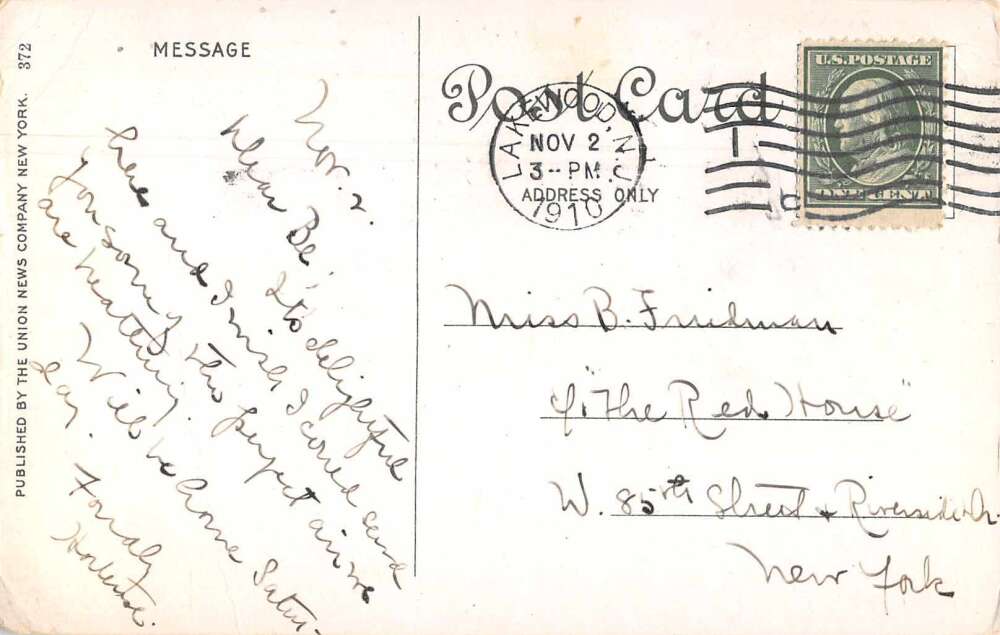 372
PUBLISHED BY THE UNION NEWS COMPANY NEW YORK.
MESSAGE
Nov. 2.
Dear Be',
Its delightful
here and I wish I could send
you some of this perfect air we
are breathing.
Will be home Satur-
day.
Fondly
Hortense.
Post Card
ADDRESS ONLY
LAKEWOOD, N.J.
NOV 2
3-PM
1910
U.S. POSTAGE
ONE CENT
Miss B. Friedman
c/o "The Red House"
W. 85th Street & Riverside Dr.
New York